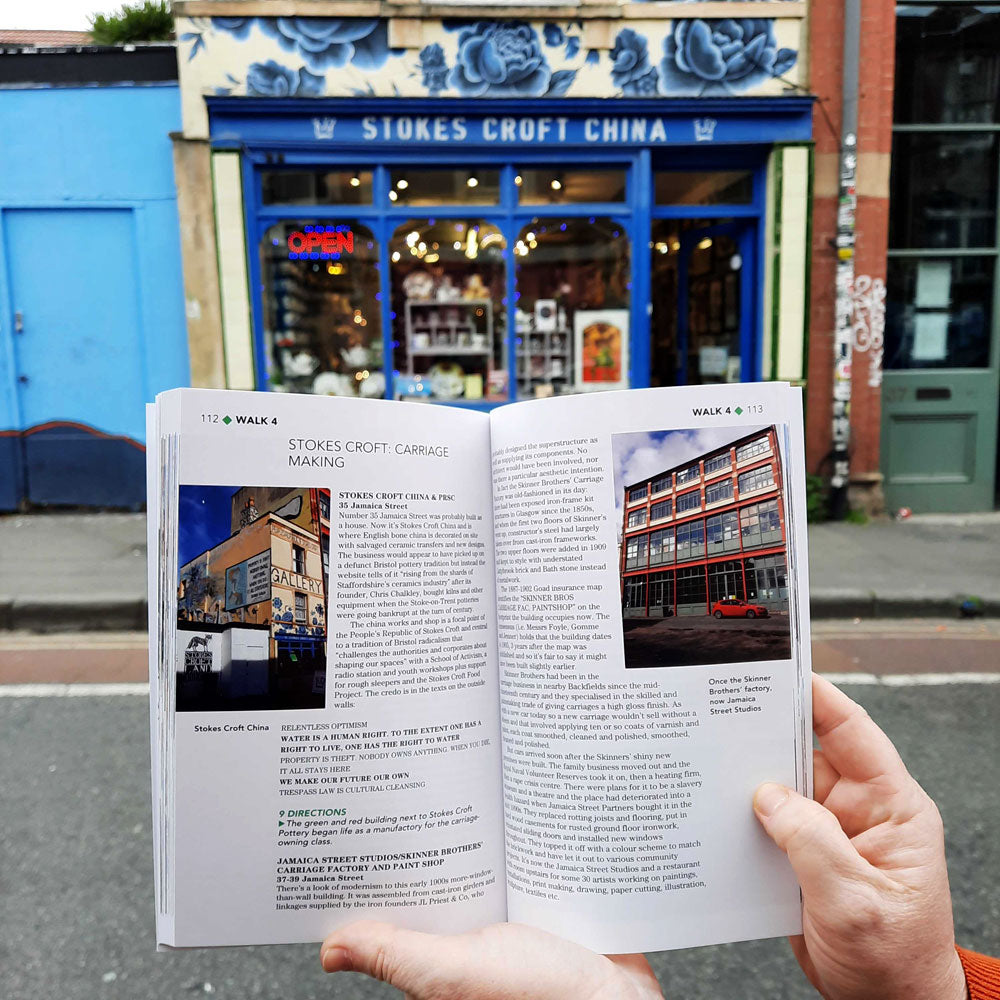 STOKES CROFT CHINA
OPEN
37
112 ◆ WALK 4
STOKES CROFT: CARRIAGE
MAKING
GALLERY
STOKES CROFT CHINA & PRSC
35 Jamaica Street
Number 35 Jamaica Street was probably built as
a house. Now it's Stokes Croft China and is
where English bone china is decorated on site
with salvaged ceramic transfers and new designs.
The business would appear to have picked up on
a defunct Bristol pottery tradition but instead the
website tells of it "rising from the shards of
Staffordshire's ceramics industry" after its
founder, Chris Chalkley, bought kilns and other
equipment when the Stoke-on-Trent potteries
were going bankrupt at the turn of century.
The china works and shop is a focal point of
the People's Republic of Stokes Croft and central
to a tradition of Bristol radicalism that
"challenges the authorities and corporates about
shaping our spaces" with a School of Activism, a
radio station and youth workshops plus support
for rough sleepers and the Stokes Croft Food
Project. The credo is in the texts on the outside
walls:
Stokes Croft China
RELENTLESS OPTIMISM
WATER IS A HUMAN RIGHT. TO THE EXTENT ONE HAS A
RIGHT TO LIVE, ONE HAS THE RIGHT TO WATER
PROPERTY IS THEFT. NOBODY OWNS ANYTHING. WHEN YOU DIE,
IT ALL STAYS HERE
WE MAKE OUR FUTURE OUR OWN
TRESPASS LAW IS CULTURAL CLEANSING
9 DIRECTIONS
▶ The green and red building next to Stokes Croft
Pottery began life as a manufactory for the carriage-
owning class.
JAMAICA STREET STUDIOS/SKINNER BROTHERS'
CARRIAGE FACTORY AND PAINT SHOP
37-39 Jamaica Street
There's a look of modernism to this early 1900s more-window-
than-wall building. It was assembled from cast-iron girders and
linkages supplied by the iron founders JL Priest & Co, who
WALK 4 ◆ 113
designed the superstructure as
supplying its components. No
would have been involved, nor
there a particular aesthetic intention.
In fact the Skinner Brothers' Carriage
was old-fashioned in its day:
had been exposed iron-frame kit
in Glasgow since the 1850s,
when the first two floors of Skinner's
up, constructor's steel had largely
over from cast-iron frameworks.
two upper floors were added in 1909
kept to style with understated
brick and Bath stone instead
The 1887-1902 Goad insurance map
the "SKINNER BROS
CARRIAGE FAC. PAINTSHOP" on the
the building occupies now. The
(i.e. Messrs Foyle, Gomme
holds that the building dates
1905, 3 years after the map was
and so it's fair to say it might
been built slightly earlier
Skinner Brothers had been in the
business in nearby Backfields since the mid-
century and they specialised in the skilled and
trade of giving carriages a high gloss finish. As
a new car today so a new carriage wouldn't sell without a
and that involved applying ten or so coats of varnish and
each coat smoothed, cleaned and polished, smoothed,
and polished.
But cars arrived soon after the Skinners' shiny new
were built. The family business moved out and the
Naval Volunteer Reserves took it on, then a heating firm,
a rape crisis centre. There were plans for it to be a slavery
and a theatre and the place had deteriorated into a
hazard when Jamaica Street Partners bought it in the
1990s. They replaced rotting joists and flooring, put in
wood casements for rusted ground floor ironwork,
sliding doors and installed new windows
They topped it off with a colour scheme to match
and have let it out to various community
It's now the Jamaica Street Studios and a restaurant
upstairs for some 30 artists working on paintings,
print making, drawing, paper cutting, illustration,
textiles etc.
Once the Skinner
Brothers' factory,
now Jamaica
Street Studios